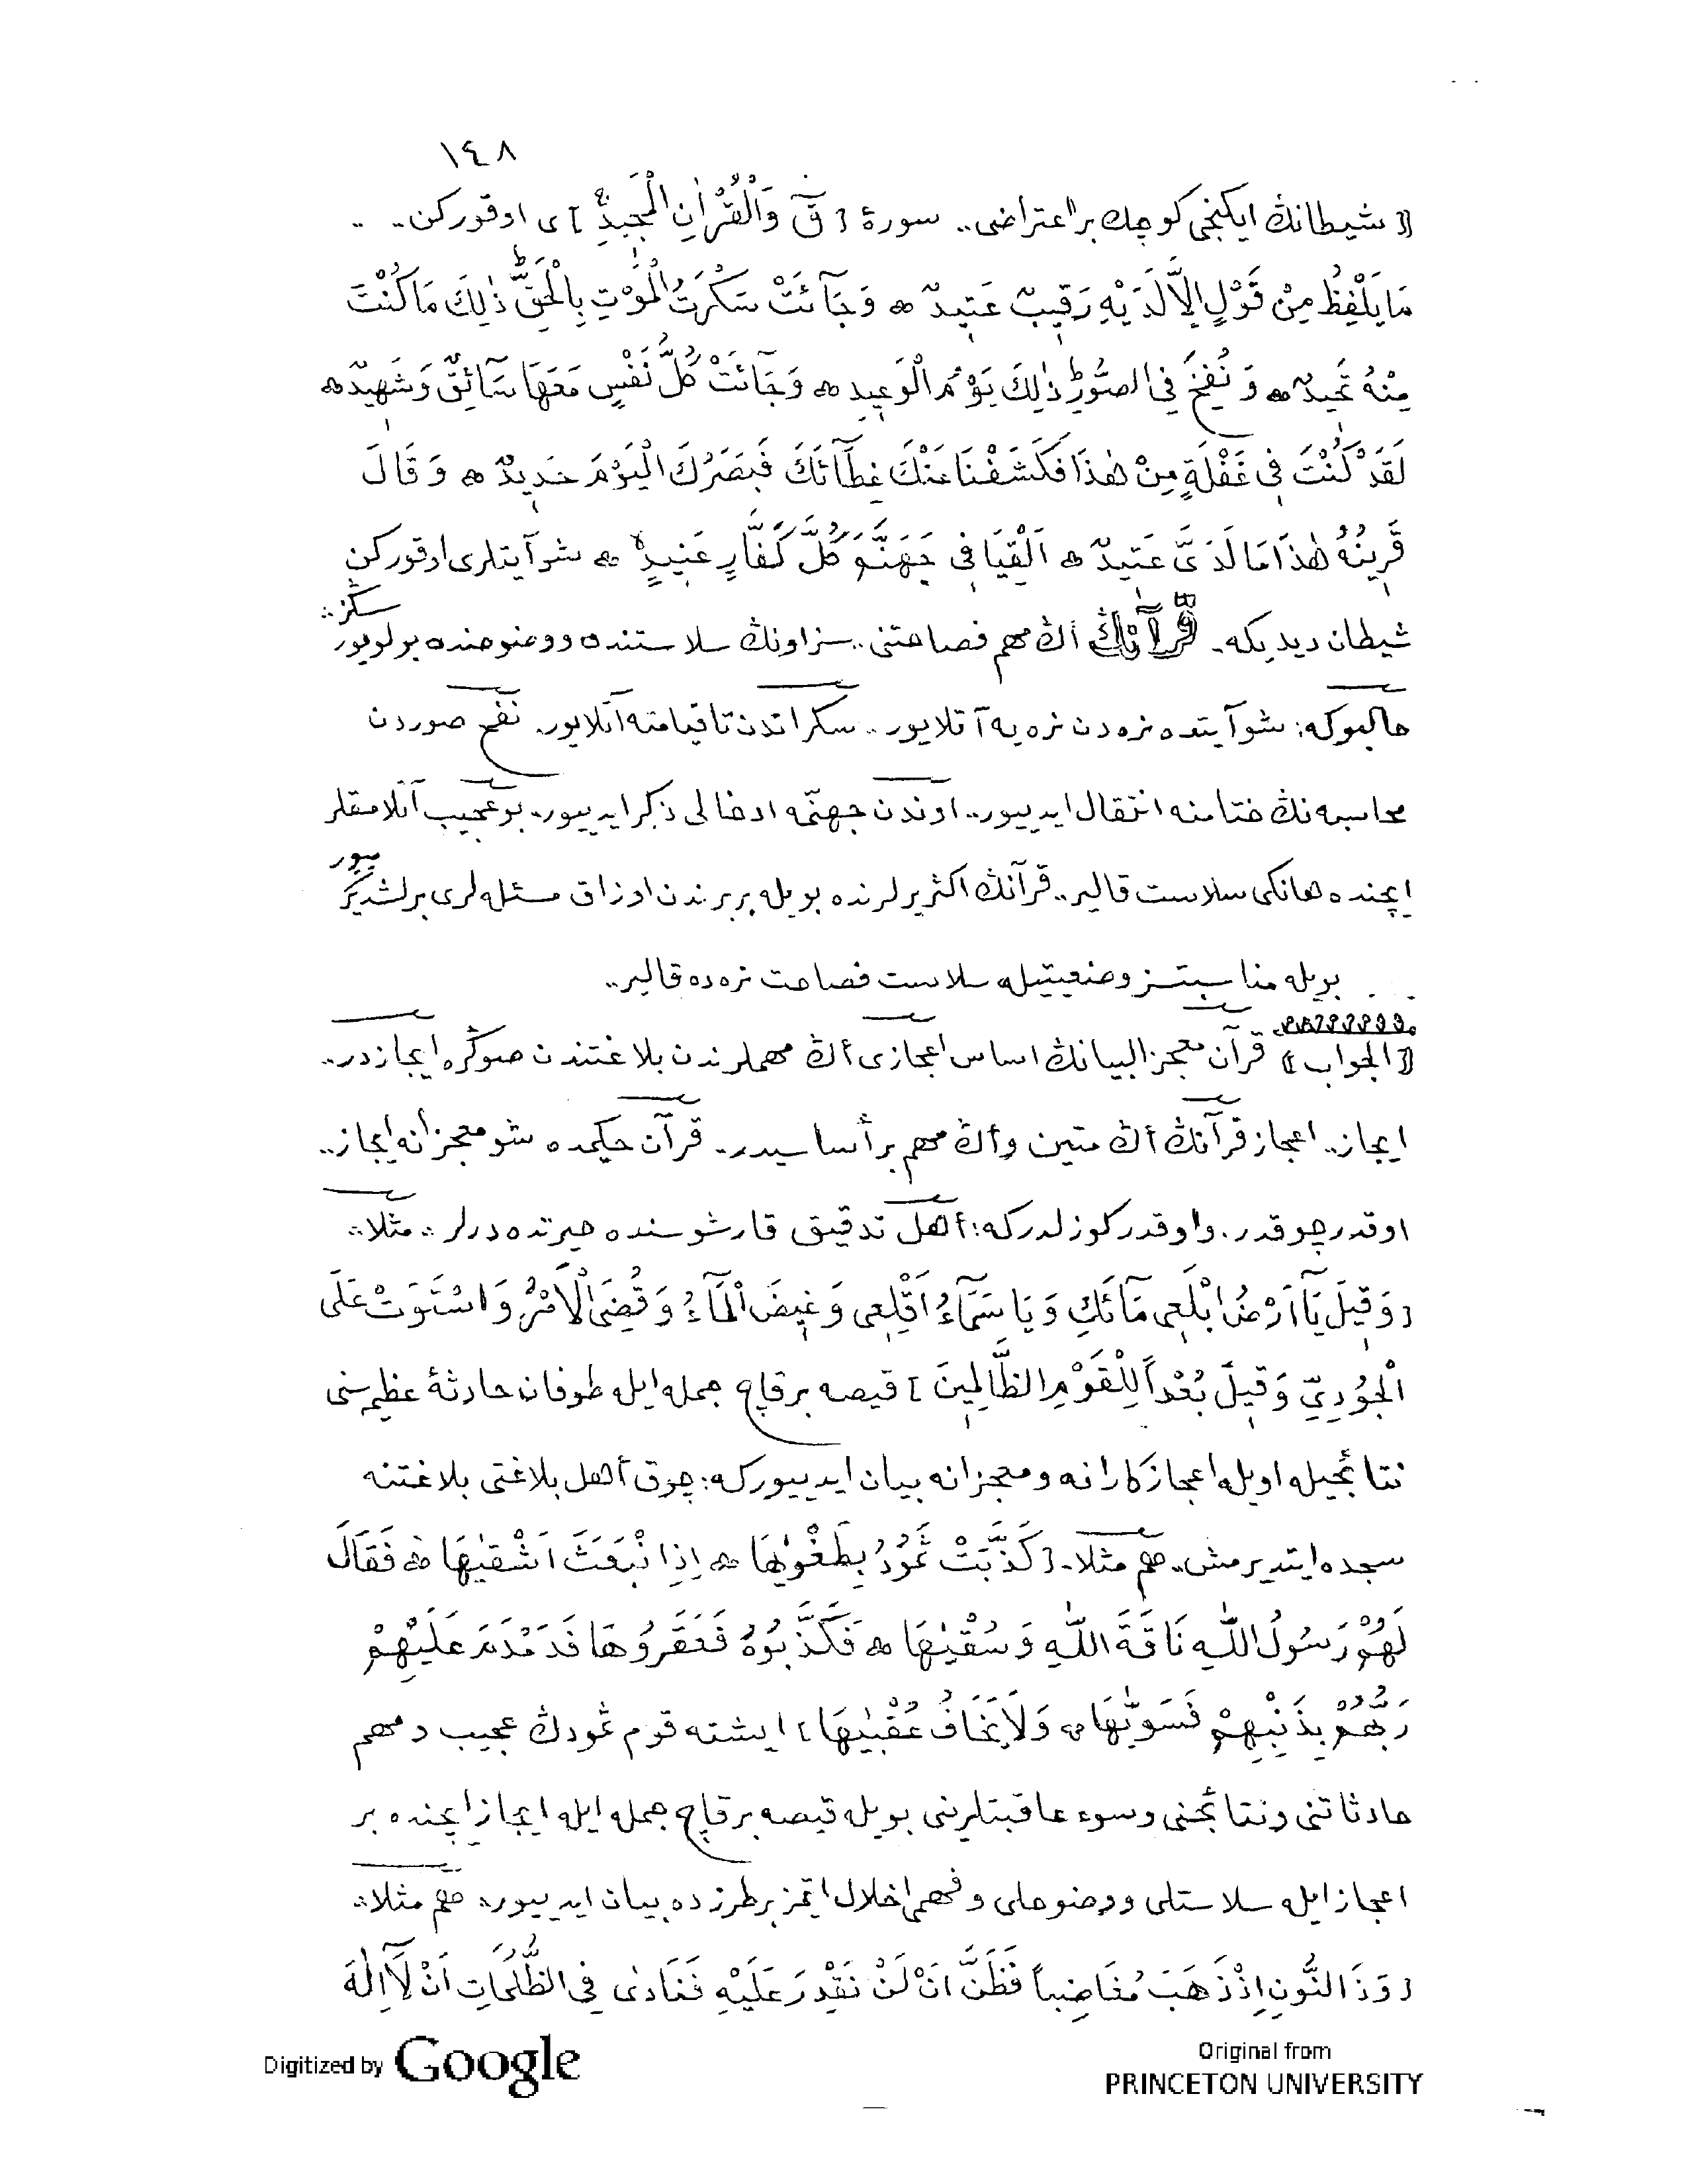 ١٤٨
⟦ شيطانڭ ايكنجى كوچك بر اعتراضى.. سورهٔ [ قٓ وَالْقُرْاٰنِ الْمَجِيدِ ] ى اوقوركن.. ..
مَا يَلْفِظُ مِنْ قَوْلٍ اِلَّا لَدَيْهِ رَقِيبٌ عَتِيدٌ ۞ وَجَٓائَتْ سَكْرَتُ الْمَوْتِ بِالْحَقِّ ذٰلِكَ مَا كُنْتَ
مِنْهُ تَحِيدُ ۞ وَ نُفِخَ فِى الصُّورِ ذٰلِكَ يَوْمُ الْوَعِيدِ ۞ وَجَٓائَتْ كُلُّ نَفْسٍ مَعَهَا سَٓائِقٌ وَشَهِيدٌ ۞
لَقَدْ كُنْتَ فِى غَفْلَةٍ مِنْ هٰذَا فَكَشَفْنَا عَنْكَ غِطَٓائَكَ فَبَصَرُكَ الْيَوْمَ حَدِيدٌ ۞ وَ قَالَ
قَرِينُهُ هٰذَا مَا لَدَىَّ عَتِيدٌ ۞ اَلْقِيَا فِى جَهَنَّمَ كُلَّ كَفَّارٍ عَنِيدٍ ۞ شو آيتلرى اوقوركن
شيطان ديديكه. قرآنڭ أڭ مهم فصاحتنى.. سز اونڭ سلاستنده و وضوحنده بولويور
سڭز∴
حالبوكه: شو آيتده نره‌دن نره‌يه آتلايور.. سكراتدن تا قيامته آتلايور. نفخ صوردن
محاسبه‌نڭ ختامنه انتقال ايدييور.. اوندن جهنّمه ادخالى ذكر ايدييور. بو عجيب آتلامقلر
ايچنده هانكى سلاست قالير.. قرآنڭ اكثر يرلرنده بويله بربرندن اوزاق مسئله‌لرى برلشدير
ييور
بويله مناسبتسز وضعيتيله سلاست فصاحت نره‌ده قالير..
⟦ الجواب ⟧ قرآن معجز البيانڭ اساس اعجازى أڭ مهملرندن بلاغتندن صوڭره ايجازدر..
ايجاز.. اعجاز قرآنڭ أڭ متين و أڭ مهم بر أساسيدر. قرآن حكيمده شو معجزانه ايجاز..
او قدر چوقدر. و او قدر كوزلدركه: أهل تدقيق قارشوسنده حيرتده‌درلر ∴ مثلا∴
[ وَ قِيلَ يَٓا اَرْضُ ابْلَعِى مَٓائَكِ وَ يَا سَمَٓاءُ اَقْلِعِى وَ غِيضَ الْمَٓاءُ وَ قُضِىَ الْاَمْرُ وَ اسْتَوَتْ عَلَى
الْجُودِىِّ وَ قِيلَ بُعْداً لِلْقَوْمِ الظَّالِمِينَ ] قيصه بر قاچ جمله ايله طوفان حادثهٔ عظيمه‌سنى
نتائجيله اويله اعجازكارانه و معجزانه بيان ايدييوركه: چوق أهل بلاغتى بلاغتنه
سجده ايتديرمش. هم مثلا. [ كَذَّبَتْ ثَمُودُ بِطَغْوٰيهَا ۞ اِذِ انْبَعَثَ اَشْقٰيهَا ۞ فَقَالَ
لَهُمْ رَسُولُ اللّٰهِ نَاقَةَ اللّٰهِ وَ سُقْيٰهَا ۞ فَكَذَّبُوهُ فَعَقَرُوهَا فَدَمْدَمَ عَلَيْهِمْ
رَبُّهُمْ بِذَنْبِهِمْ فَسَوّٰيهَا ۞ وَلَا يَخَافُ عُقْبٰيهَا ] ايشته قوم ثمودڭ عجيب و مهم
حادثاتنى و نتائجنى و سوء عاقبتلرينى بويله قيصه بر قاچ جمله ايله ايجاز ايچنده بر
اعجاز ايله سلاستلى و وضوحلى و فهمى اخلال ايتمز بر طرزده بيان ايدييور. هم مثلا∴
[ وَ ذَا النُّونِ اِذْ ذَهَبَ مُغَاضِباً فَظَنَّ اَنْ لَنْ نَقْدِرَ عَلَيْهِ فَنَادٰى فِى الظُّلُمَاتِ اَنْ لَٓا اِلٰهَ
Digitized by Google
Original from
PRINCETON UNIVERSITY